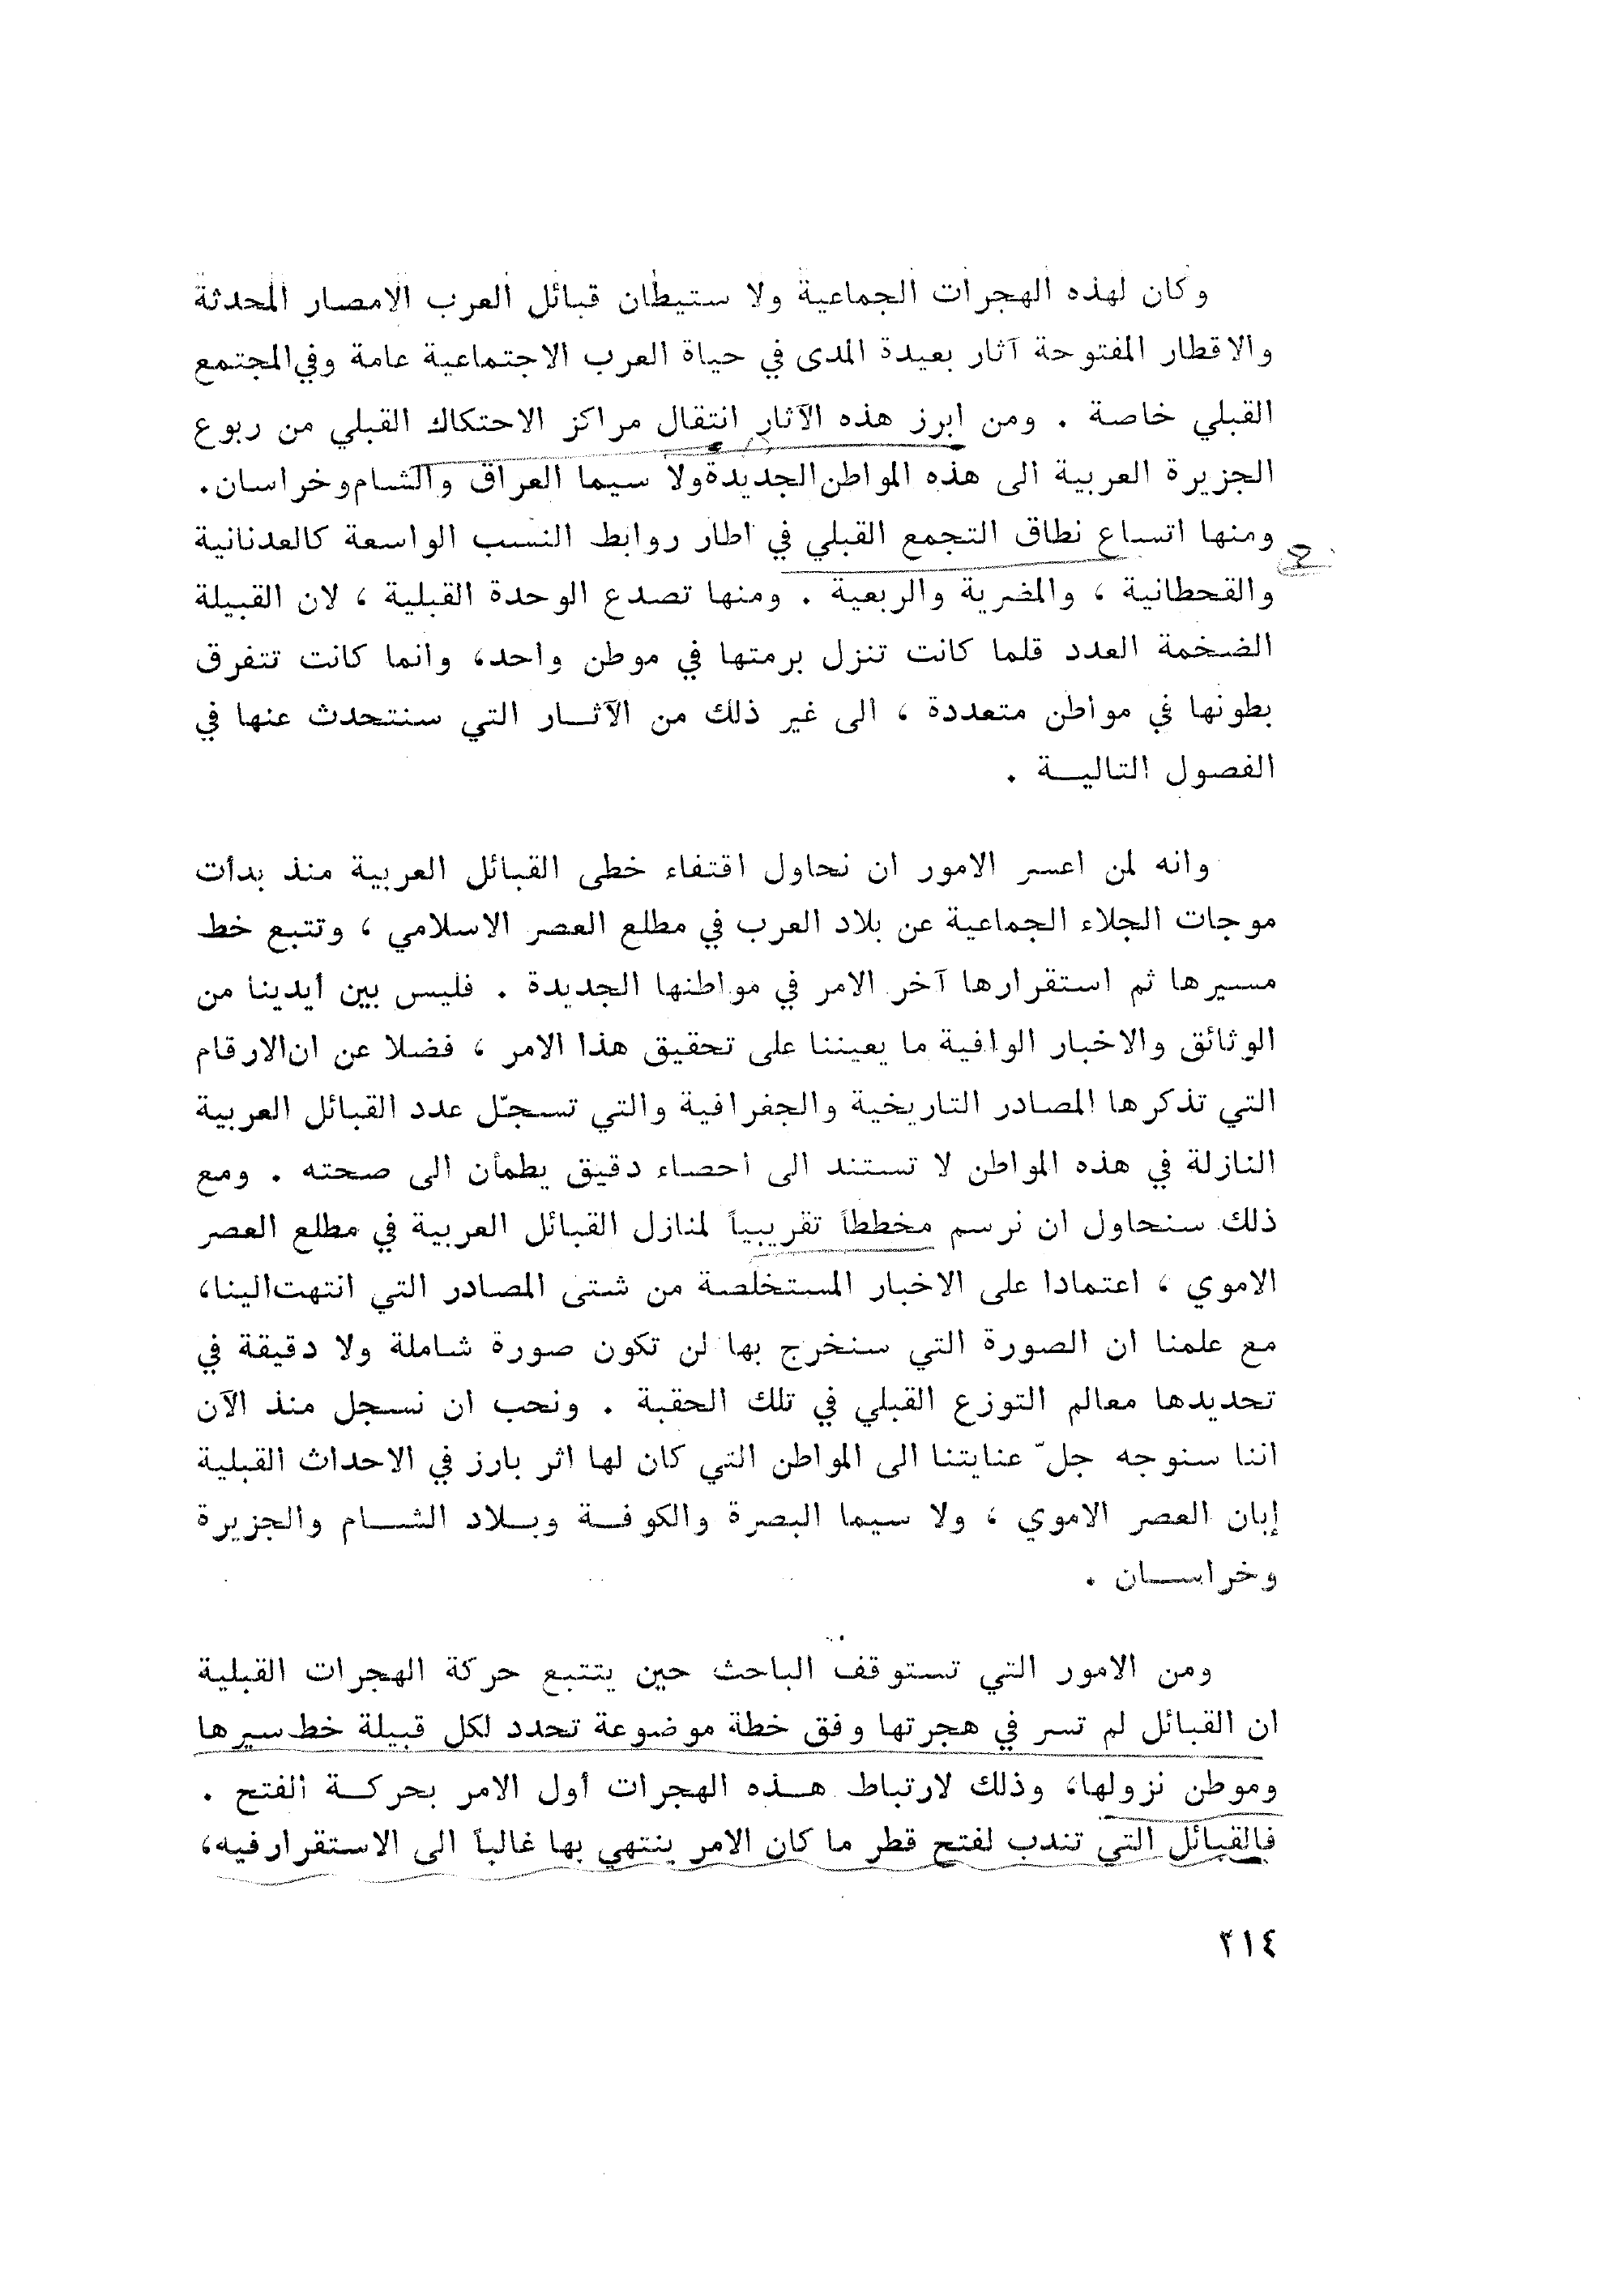 وكان لهذه الهجرات الجماعية ولا ستيطان قبائل العرب الامصار المحدثة
والاقطار المفتوحة آثار بعيدة المدى في حياة العرب الاجتماعية عامة وفي المجتمع
القبلي خاصة . ومن ابرز هذه الآثار انتقال مراكز الاحتكاك القبلي من ربوع
الجزيرة العربية الى هذه المواطن الجديدة ولا سيما العراق والشام وخراسان.
ومنها اتساع نطاق التجمع القبلي في اطار روابط النسب الواسعة كالعدنانية
والقحطانية ، والمضرية والربعية . ومنها تصدع الوحدة القبلية ، لان القبيلة
الضخمة العدد قلما كانت تنزل برمتها في موطن واحد، وانما كانت تتفرق
بطونها في مواطن متعددة ، الى غير ذلك من الآثــار التي سنتحدث عنها في
الفصول التاليــة .
وانه لمن اعسر الامور ان نحاول اقتفاء خطى القبائل العربية منذ بدأت
موجات الجلاء الجماعية عن بلاد العرب في مطلع العصر الاسلامي ، وتتبع خط
مسيرها ثم استقرارها آخر الامر في مواطنها الجديدة . فليس بين أيدينا من
الوثائق والاخبار الوافية ما يعيننا على تحقيق هذا الامر ، فضلا عن ان الارقام
التي تذكرها المصادر التاريخية والجغرافية والتي تسجّل عدد القبائل العربية
النازلة في هذه المواطن لا تستند الى احصاء دقيق يطمأن الى صحته . ومع
ذلك سنحاول ان نرسم مخططاً تقريبياً لمنازل القبائل العربية في مطلع العصر
الاموي ، اعتمادا على الاخبار المستخلصة من شتى المصادر التي انتهت الينا،
مع علمنا ان الصورة التي سنخرج بها لن تكون صورة شاملة ولا دقيقة في
تحديدها معالم التوزع القبلي في تلك الحقبة . ونحب ان نسجل منذ الآن
اننا سنوجه جلّ عنايتنا الى المواطن التي كان لها اثر بارز في الاحداث القبلية
إبان العصر الاموي ، ولا سيما البصرة والكوفــة وبــلاد الشــام والجزيرة
وخراســان .
ومن الامور التي تستوقف الباحث حين يتتبع حركة الهجرات القبلية
ان القبائل لم تسر في هجرتها وفق خطة موضوعة تحدد لكل قبيلة خط سيرها
وموطن نزولها، وذلك لارتباط هــذه الهجرات أول الامر بحركــة الفتح .
فالقبائل التي تندب لفتح قطر ما كان الامر ينتهي بها غالباً الى الاستقرار فيه،
٢١٤